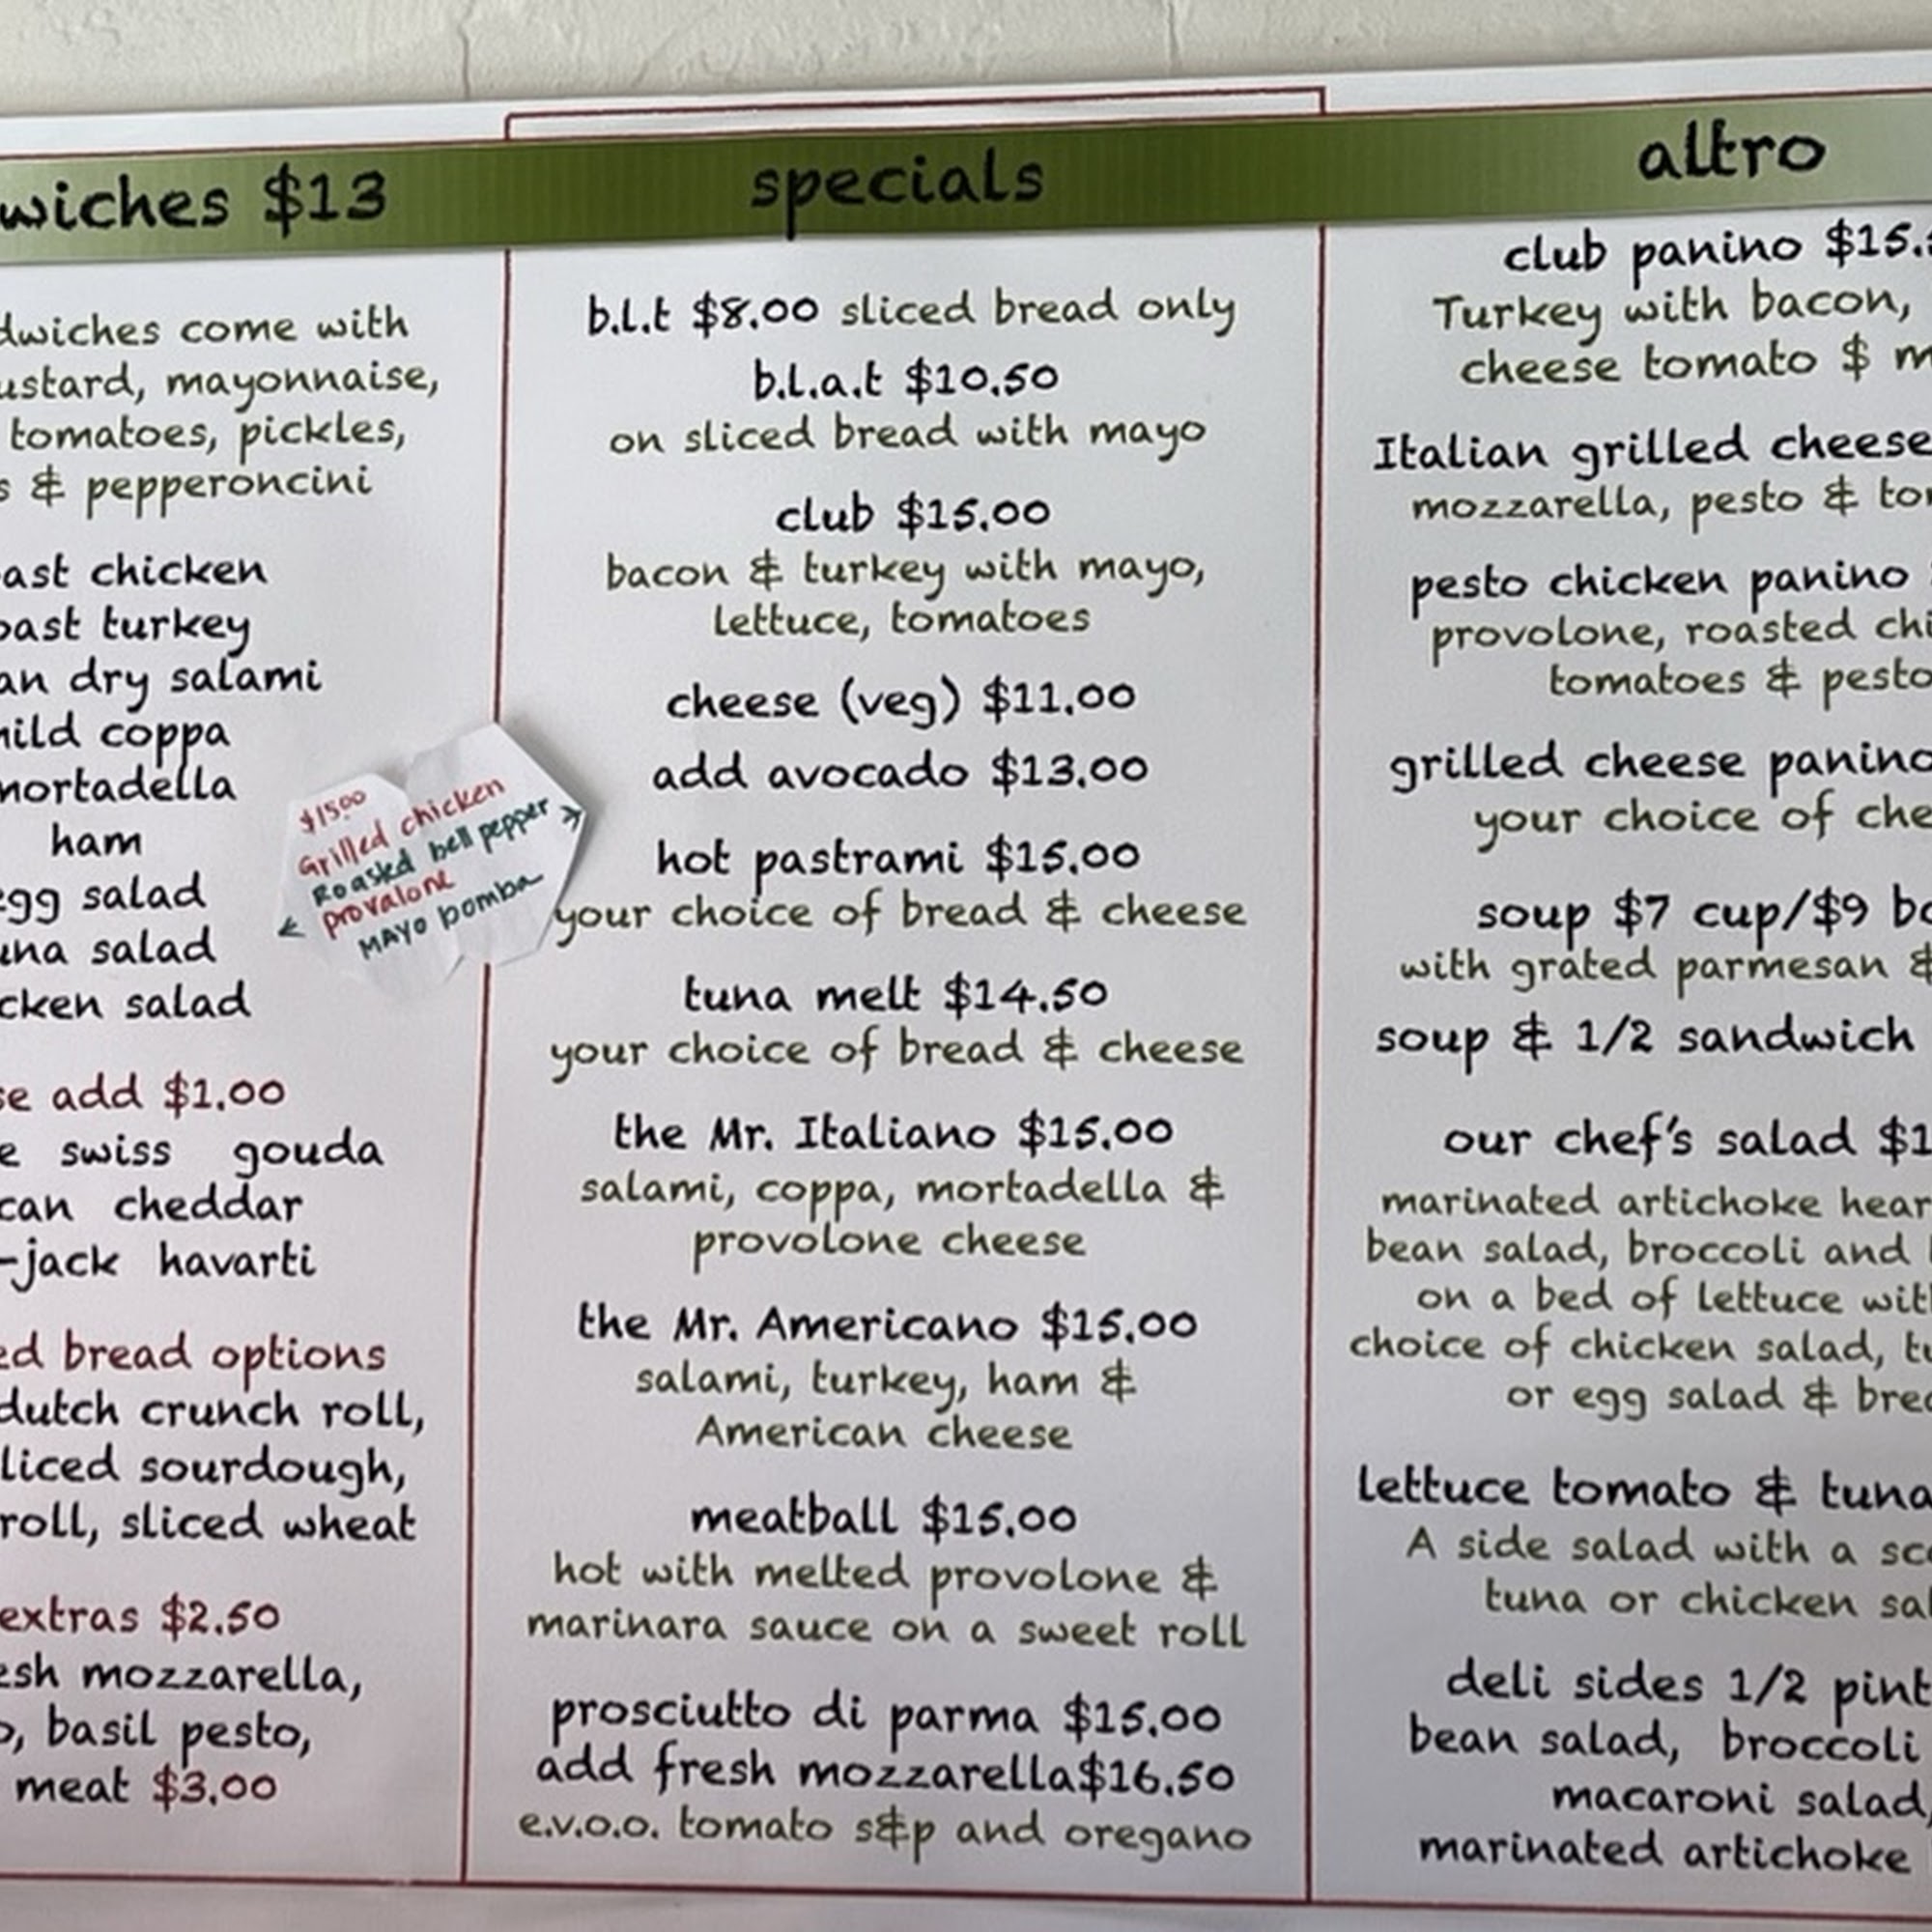 wiches $13
come with
mayonnaise,
tomatoes, pickles,
& pepperoncini
chicken
turkey
dry salami
coppa
ham
salad
salad
salad
add $1.00
swiss gouda
cheddar
havarti
bread options
dutch crunch roll,
sourdough,
roll, sliced wheat
extras $2.50
mozzarella,
basil pesto,
meat $3.00
$15.00
Grilled chicken
Roasted bell pepper
provalone
MAYO bomba
specials
b.l.t $8.00 sliced bread only
b.l.a.t $10.50
on sliced bread with mayo
club $15.00
bacon & turkey with mayo,
lettuce, tomatoes
cheese (veg) $11.00
add avocado $13.00
hot pastrami $15.00
your choice of bread & cheese
tuna melt $14.50
your choice of bread & cheese
the Mr. Italiano $15.00
salami, coppa, mortadella &
provolone cheese
the Mr. Americano $15.00
salami, turkey, ham &
American cheese
meatball $15.00
hot with melted provolone &
marinara sauce on a sweet roll
prosciutto di parma $15.00
add fresh mozzarella$16.50
e.v.o.o. tomato s&p and oregano
altro
club panino $15.
Turkey with bacon,
cheese tomato $
Italian grilled cheese
mozzarella, pesto &
pesto chicken panino
provolone, roasted
tomatoes & pesto
grilled cheese panino
your choice of
soup $7 cup/$9
with grated parmesan &
soup & 1/2 sandwich
our chef's salad
marinated artichoke
bean salad, broccoli and
on a bed of lettuce
choice of chicken salad,
or egg salad &
lettuce tomato & tuna
A side salad with a
tuna or chicken
deli sides 1/2 pint
bean salad, broccoli
macaroni salad,
marinated artichoke